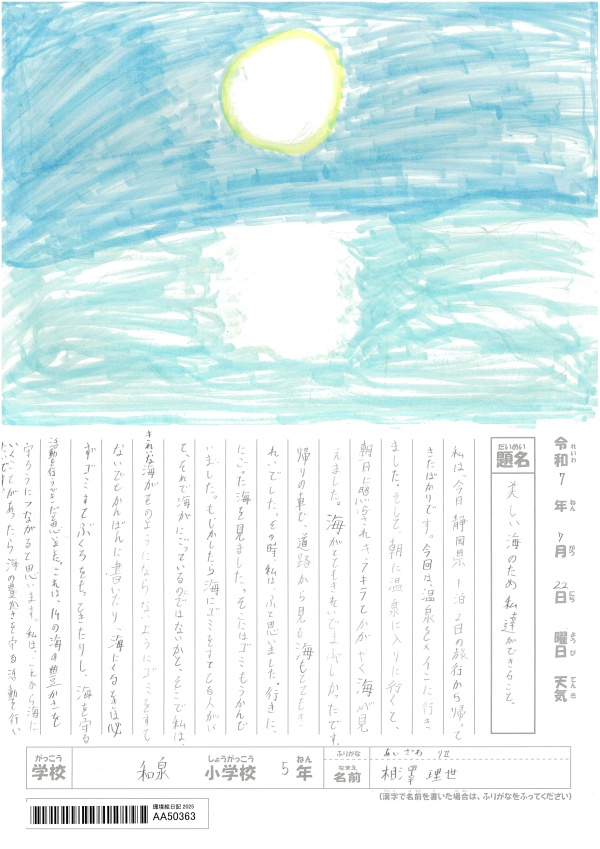 令和7年7月22日 曜日 天気
れいわ ねん がつ にち ようび てんき
題名 美しい海のため私達ができること。
だいめい
私は、今日静岡県1泊2日の旅行から帰って
きたばかりです。今回は、温泉をメインに行き
ました。そして朝に温泉に入りに行くて、
朝日に照らされキラキラとかがやく海が見
えました。海がとてもきれいでまぶしかったです。
帰りの車で、道路から見る海もとてもき
れいでした。その時、私は、ふと思いました。行きに、
にごった海を見ました。そこにはゴミもうかんで
いました。もしかしたら海にゴミをすてる人がい
て、それで海がにごっているのではないかと。そこで私は、
きれいな海がそのようにならないようにゴミをすて
ないでとかんばんに書いたり、海にくるときは必
ずゴミすてぶくろをもってきたりし、海を守る
活動を行うべきだと思いました。これは、14の海の豊かさを
守ろうにつながると思います。私は、これから海に
いくことがあったら海の豊かさを守る活動を行い
たいです。
がっこう しょうがっこう ねん ふりがな あいざわ りせ
学校 和泉 小学校 5年 名前 相澤 理世
なまえ
(漢字で名前を書いた場合は、ふりがなをふってください)
環境絵日記 2025
AA50363